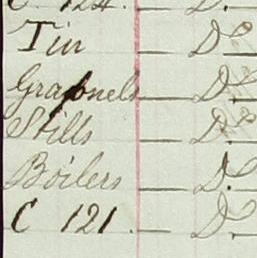 C 124. — Do
Tin — Do
Grapnels — Do
Stills — Do
Boilers — Do
C 121. — Do